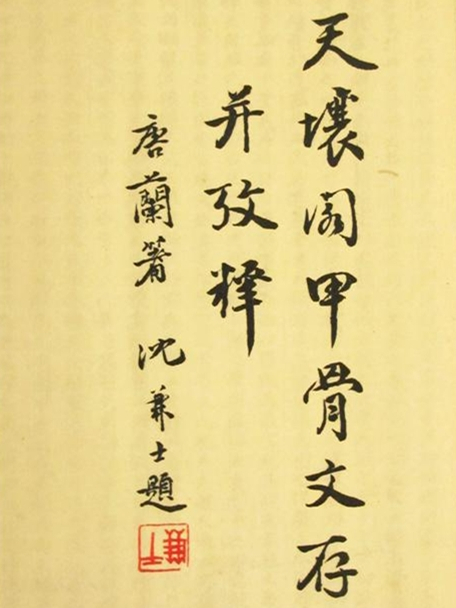 天壤阁甲骨文存
并攷釋
唐蘭著 沈兼士題
兼士